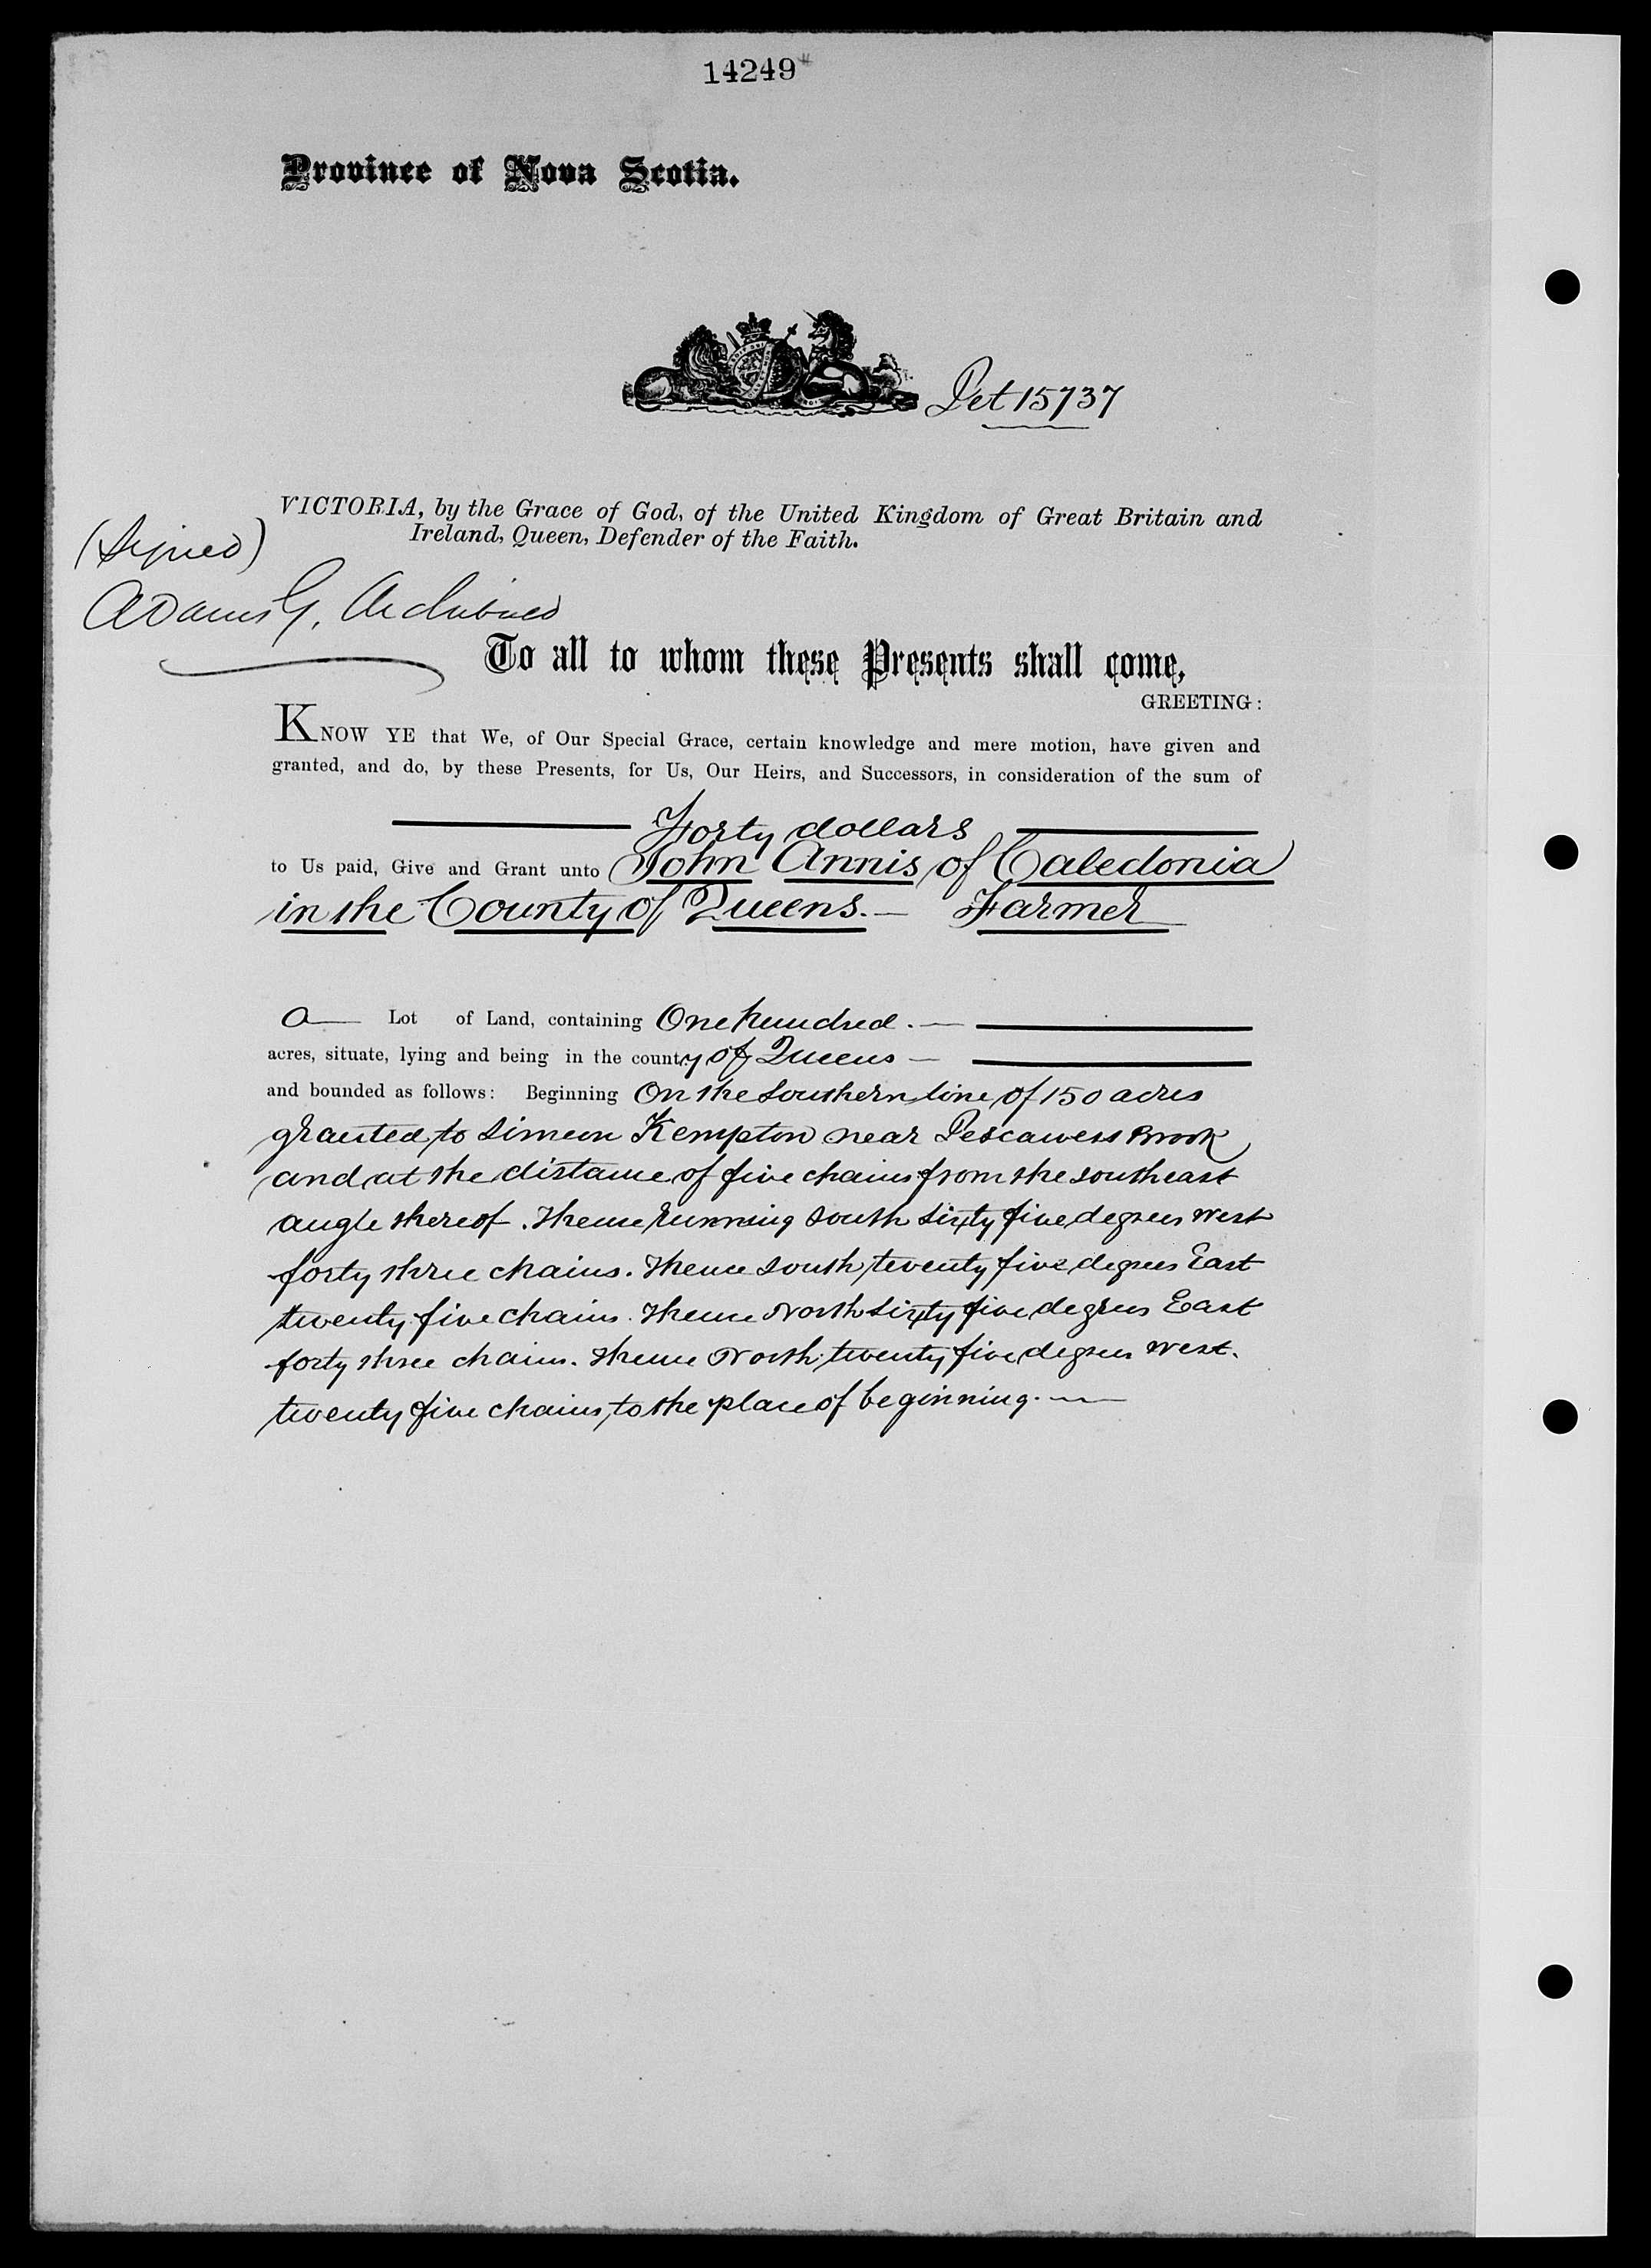 14249
Province of Nova Scotia.
Pet 15737
VICTORIA, by the Grace of God, of the United Kingdom of Great Britain and
Ireland, Queen, Defender of the Faith.
(Signed)
Adams G. Archibald
To all to whom these Presents shall come,
GREETING:
KNOW YE that We, of Our Special Grace, certain knowledge and mere motion, have given and
granted, and do, by these Presents, for Us, Our Heirs, and Successors, in consideration of the sum of
Forty dollars
to Us paid, Give and Grant unto John Annis of Caledonia
in the County of Queens. — Farmer
a Lot of Land, containing One hundred. —
acres, situate, lying and being in the county of Queens —
and bounded as follows: Beginning On the Southern line of 150 acres
granted to Simeon Kempton near Pescawess Brook
and at the distance of five chains from the southeast
angle thereof. Thence running South sixty five degrees West
forty three chains. Thence South twenty five degrees East
twenty five chains. Thence North sixty five degrees East
forty three chains. Thence North twenty five degrees West.
twenty five chains, to the place of beginning. —